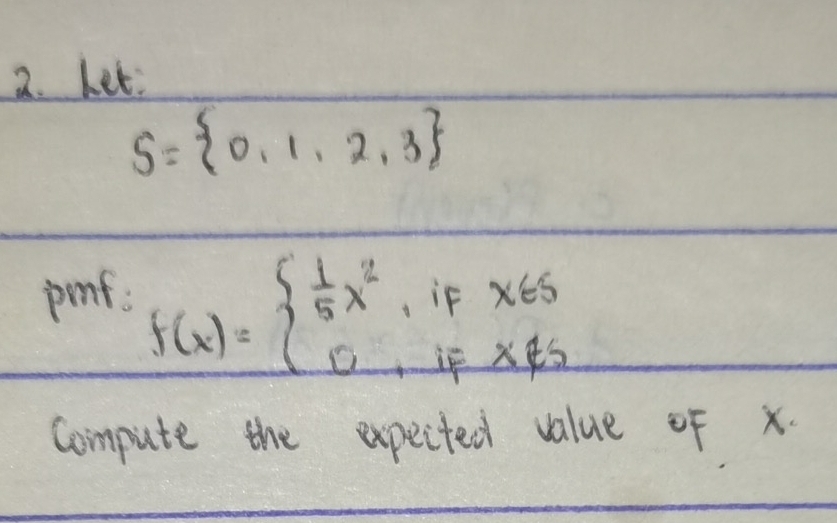 2. Let:
S = {0, 1, 2, 3}
pmf: f(x) = { 1/5 x², if x∈S
0, if x∉S
Compute the expected value of x.